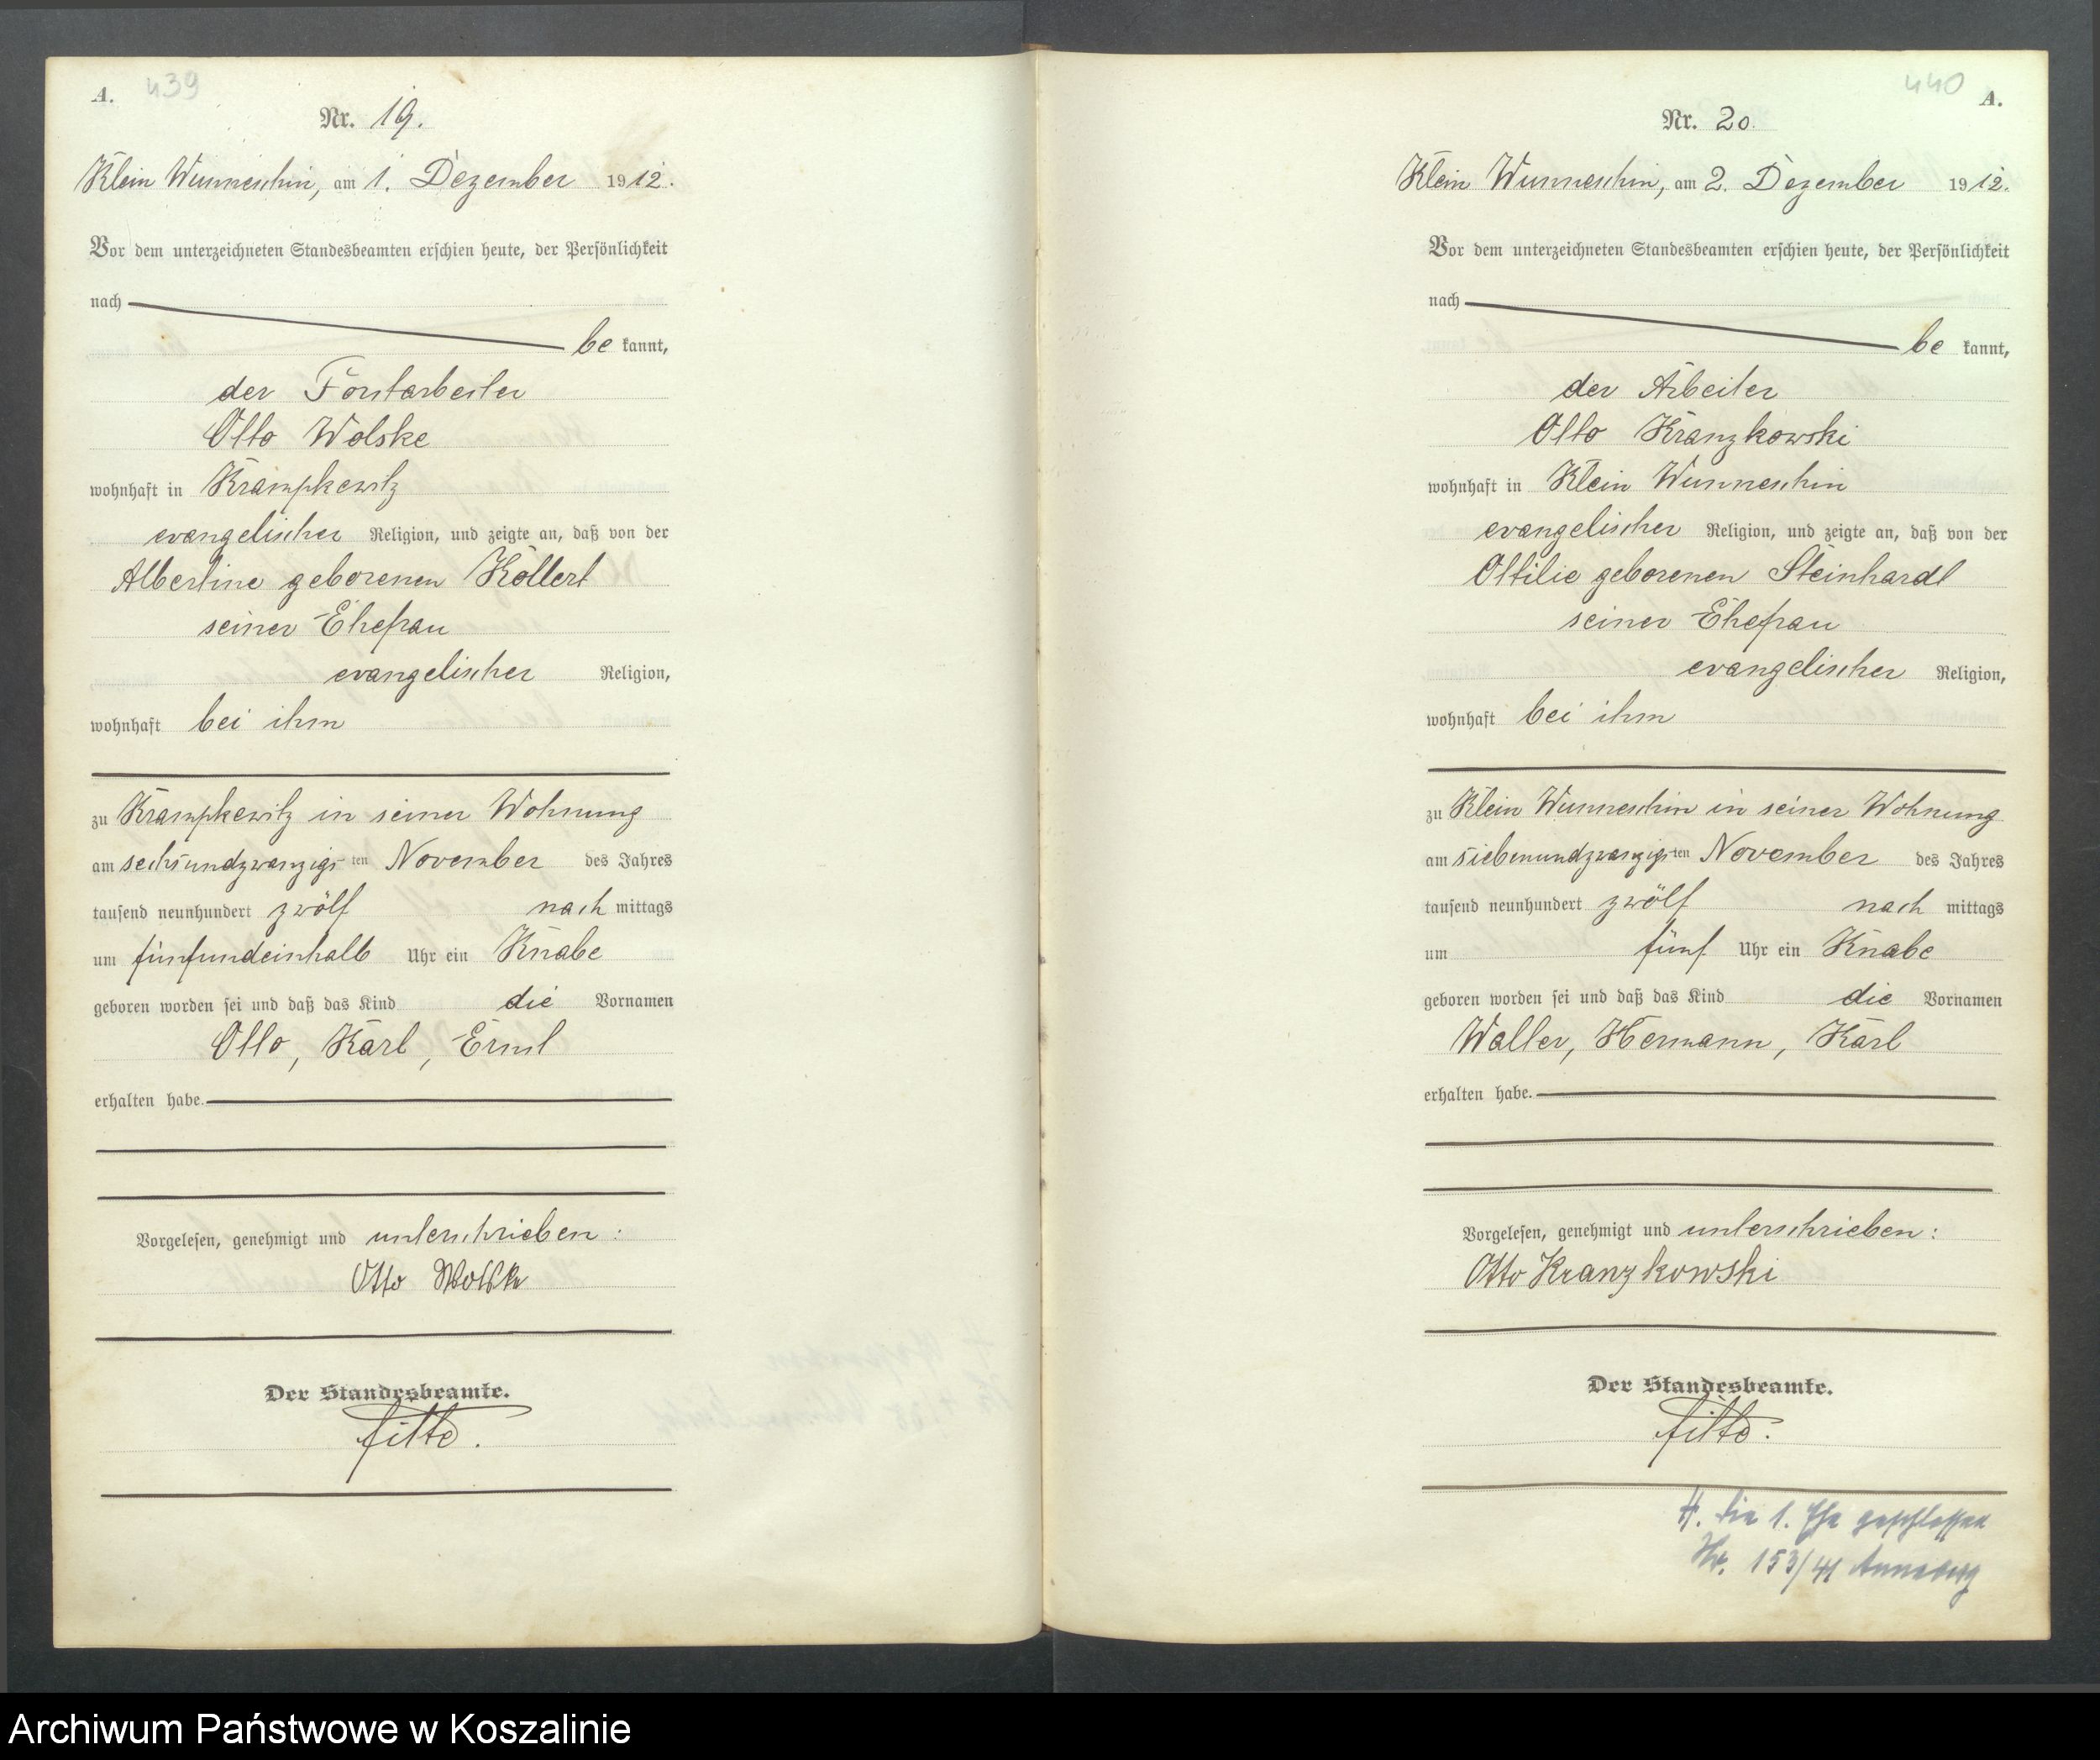 A. 439
Nr. 19.
Klein Wunneschin, am 1. Dezember 1912.
Vor dem unterzeichneten Standesbeamten erschien heute, der Persönlichkeit
nach
be kannt,
der Forstarbeiter
Otto Wolske
wohnhaft in Krampkewitz
evangelischer Religion, und zeigte an, daß von der
Albertine geborenen Köllert
seiner Ehefrau
evangelischer Religion,
wohnhaft bei ihm
zu Krampkewitz in seiner Wohnung
am sechsundzwanzigs ten November des Jahres
tausend neunhundert zwölf nach mittags
um fünfundeinhalb Uhr ein Knabe
geboren worden sei und daß das Kind die Vornamen
Otto, Karl, Ernst
erhalten habe.
Vorgelesen, genehmigt und unterschrieben:
Otto Wolske
Der Standesbeamte.
440 A.
Nr. 20.
Klein Wunneschin, am 2. Dezember 1912.
Vor dem unterzeichneten Standesbeamten erschien heute, der Persönlichkeit
nach
be kannt,
der Arbeiter
Otto Kranzkowski
wohnhaft in Klein Wunneschin
evangelischer Religion, und zeigte an, daß von der
Ottilie geborenen Steinhardt
seiner Ehefrau
evangelischer Religion,
wohnhaft bei ihm
zu Klein Wunneschin in seiner Wohnung
am siebenundzwanzigs ten November des Jahres
tausend neunhundert zwölf nach mittags
um fünf Uhr ein Knabe
geboren worden sei und daß das Kind die Vornamen
Walter, Hermann, Karl
erhalten habe.
Vorgelesen, genehmigt und unterschrieben:
Otto Kranzkowski
Der Standesbeamte.
H. die 1. Ehe geschlossen
Nr. 153/41 Annaberg
Archiwum Państwowe w Koszalinie